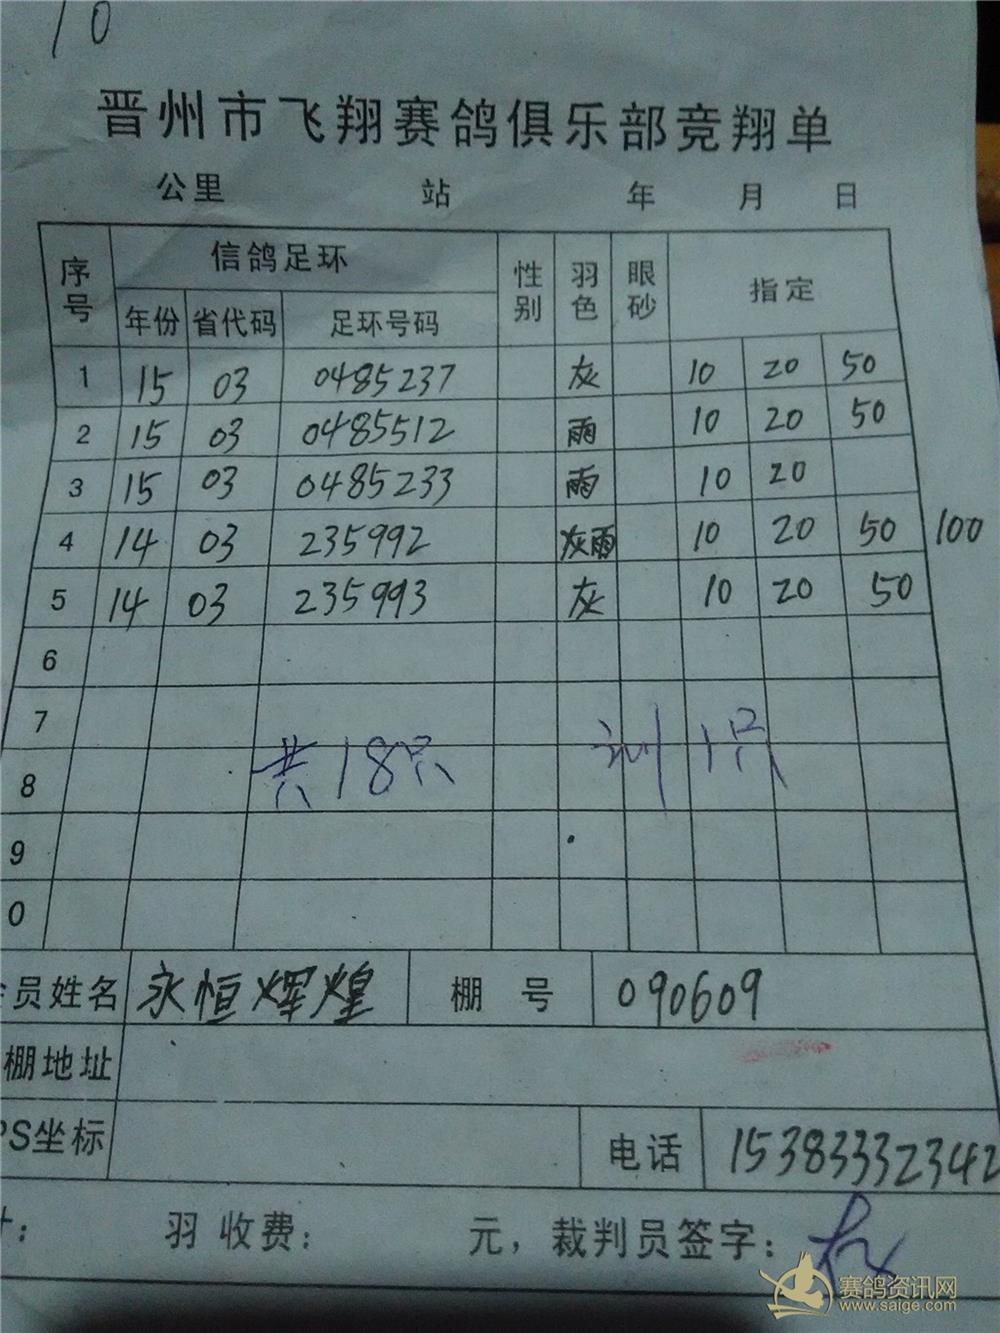 10
晋州市飞翔赛鸽俱乐部竞翔单
公里 站 年 月 日
序号 信鸽足环 性别 羽色 眼砂 指定
年份 省代码 足环号码
1 15 03 0485237 灰 10 20 50
2 15 03 0485512 雨 10 20 50
3 15 03 0485233 雨 10 20
4 14 03 235992 灰雨 10 20 50 100
5 14 03 235993 灰 10 20 50
6
7
共18只 训1只
8
9
0
员姓名 永恒辉煌 棚号 090609
棚地址
PS坐标 电话 15383332342
计: 羽 收费: 元，裁判员签字:
赛鸽资讯网
www.saige.com